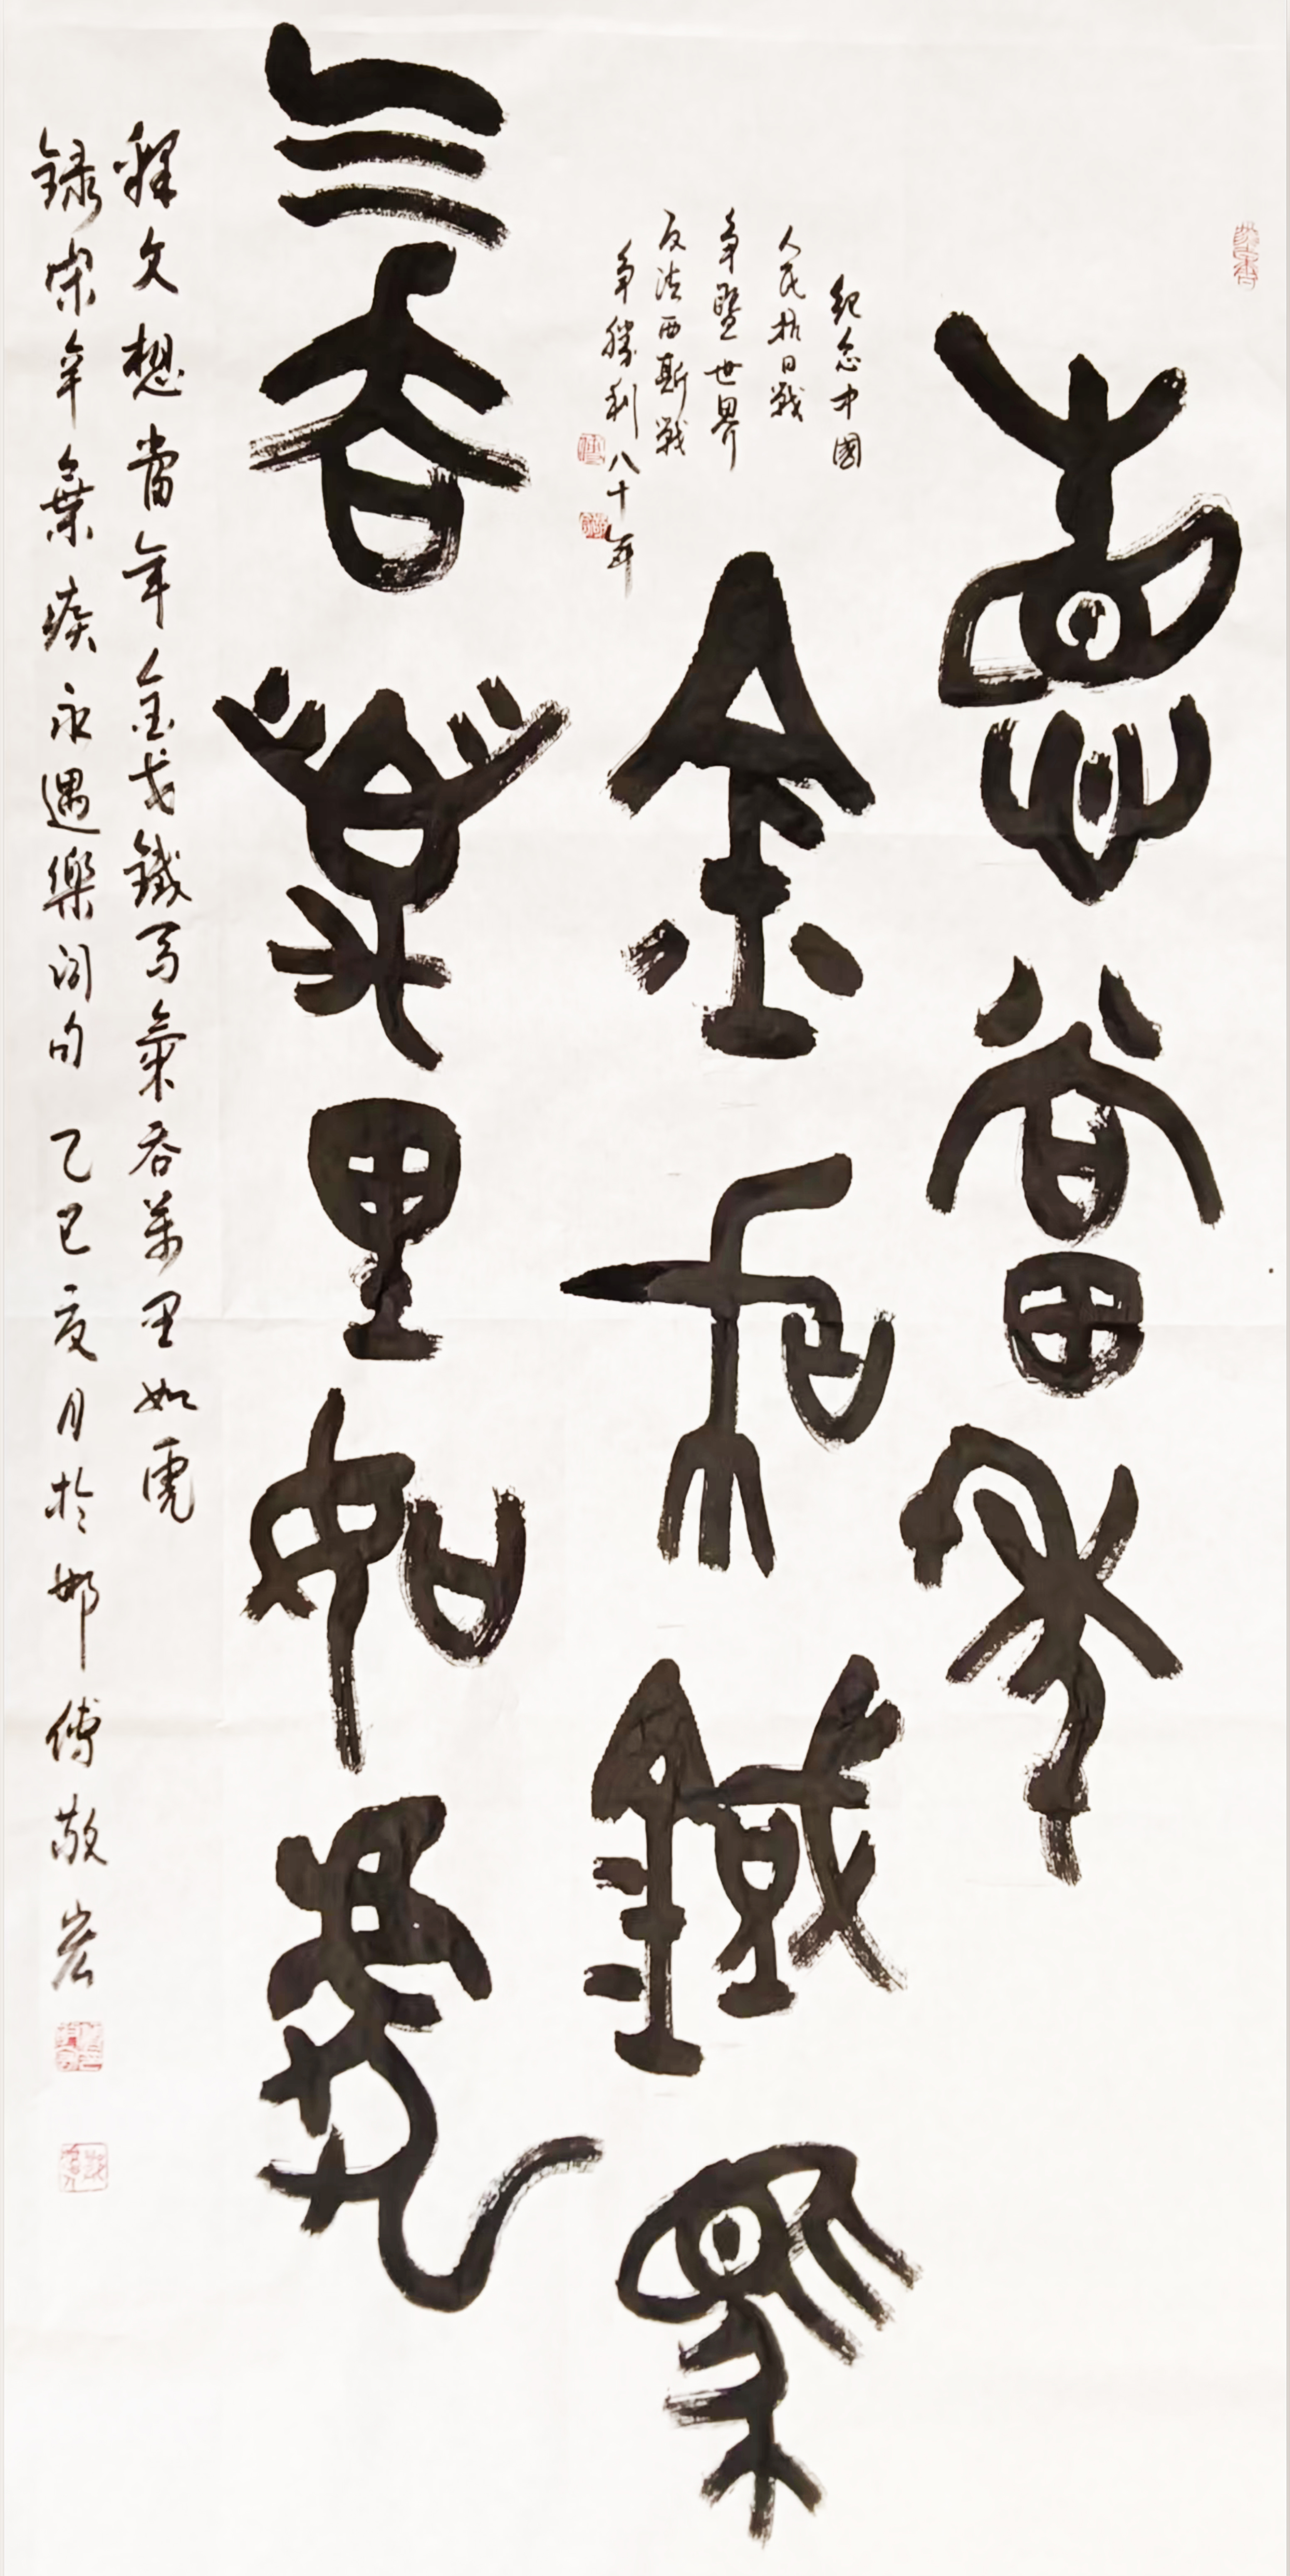 想當年
紀念中國
人民抗日戰
争暨世界
反法西斯戰
争勝利八十年
金戈鐵馬
气吞萬里如虎
釋文想當年金戈鐵馬氣吞萬里如虎
録宋辛棄疾永遇樂词句 乙巳夏月於邯 傅敬宏